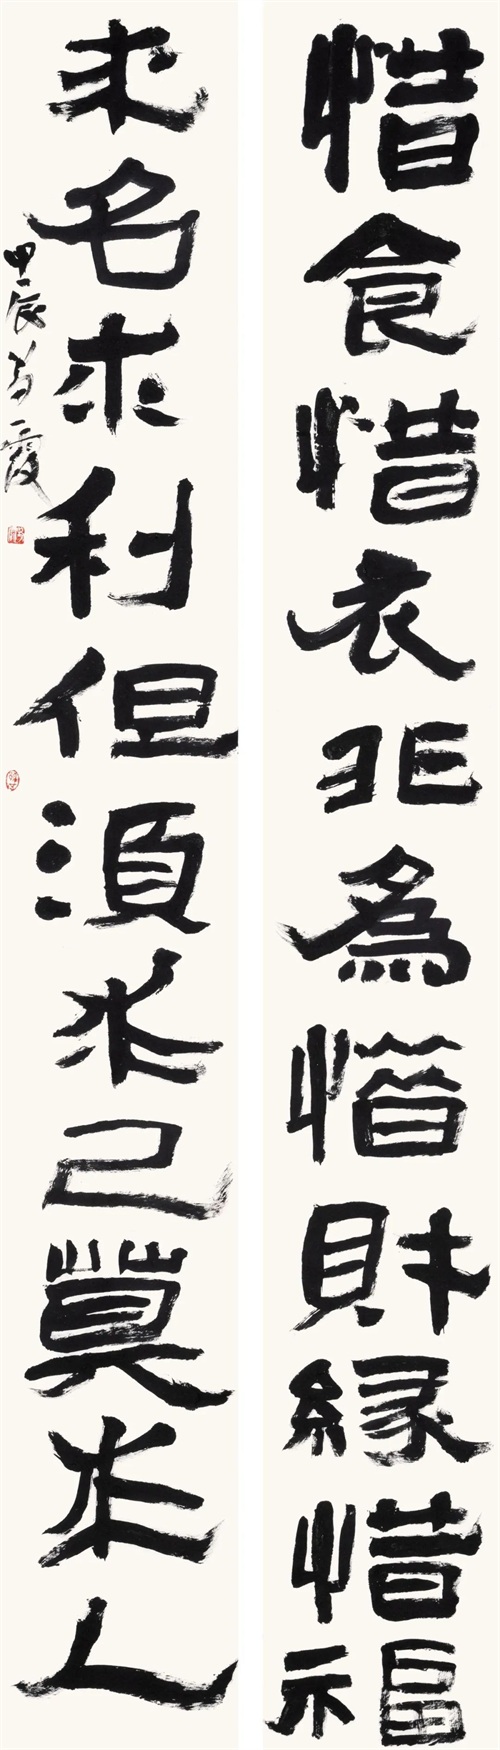 惜食惜衣非為惜財緣惜福
求名求利但須求己莫求人
甲辰
霞